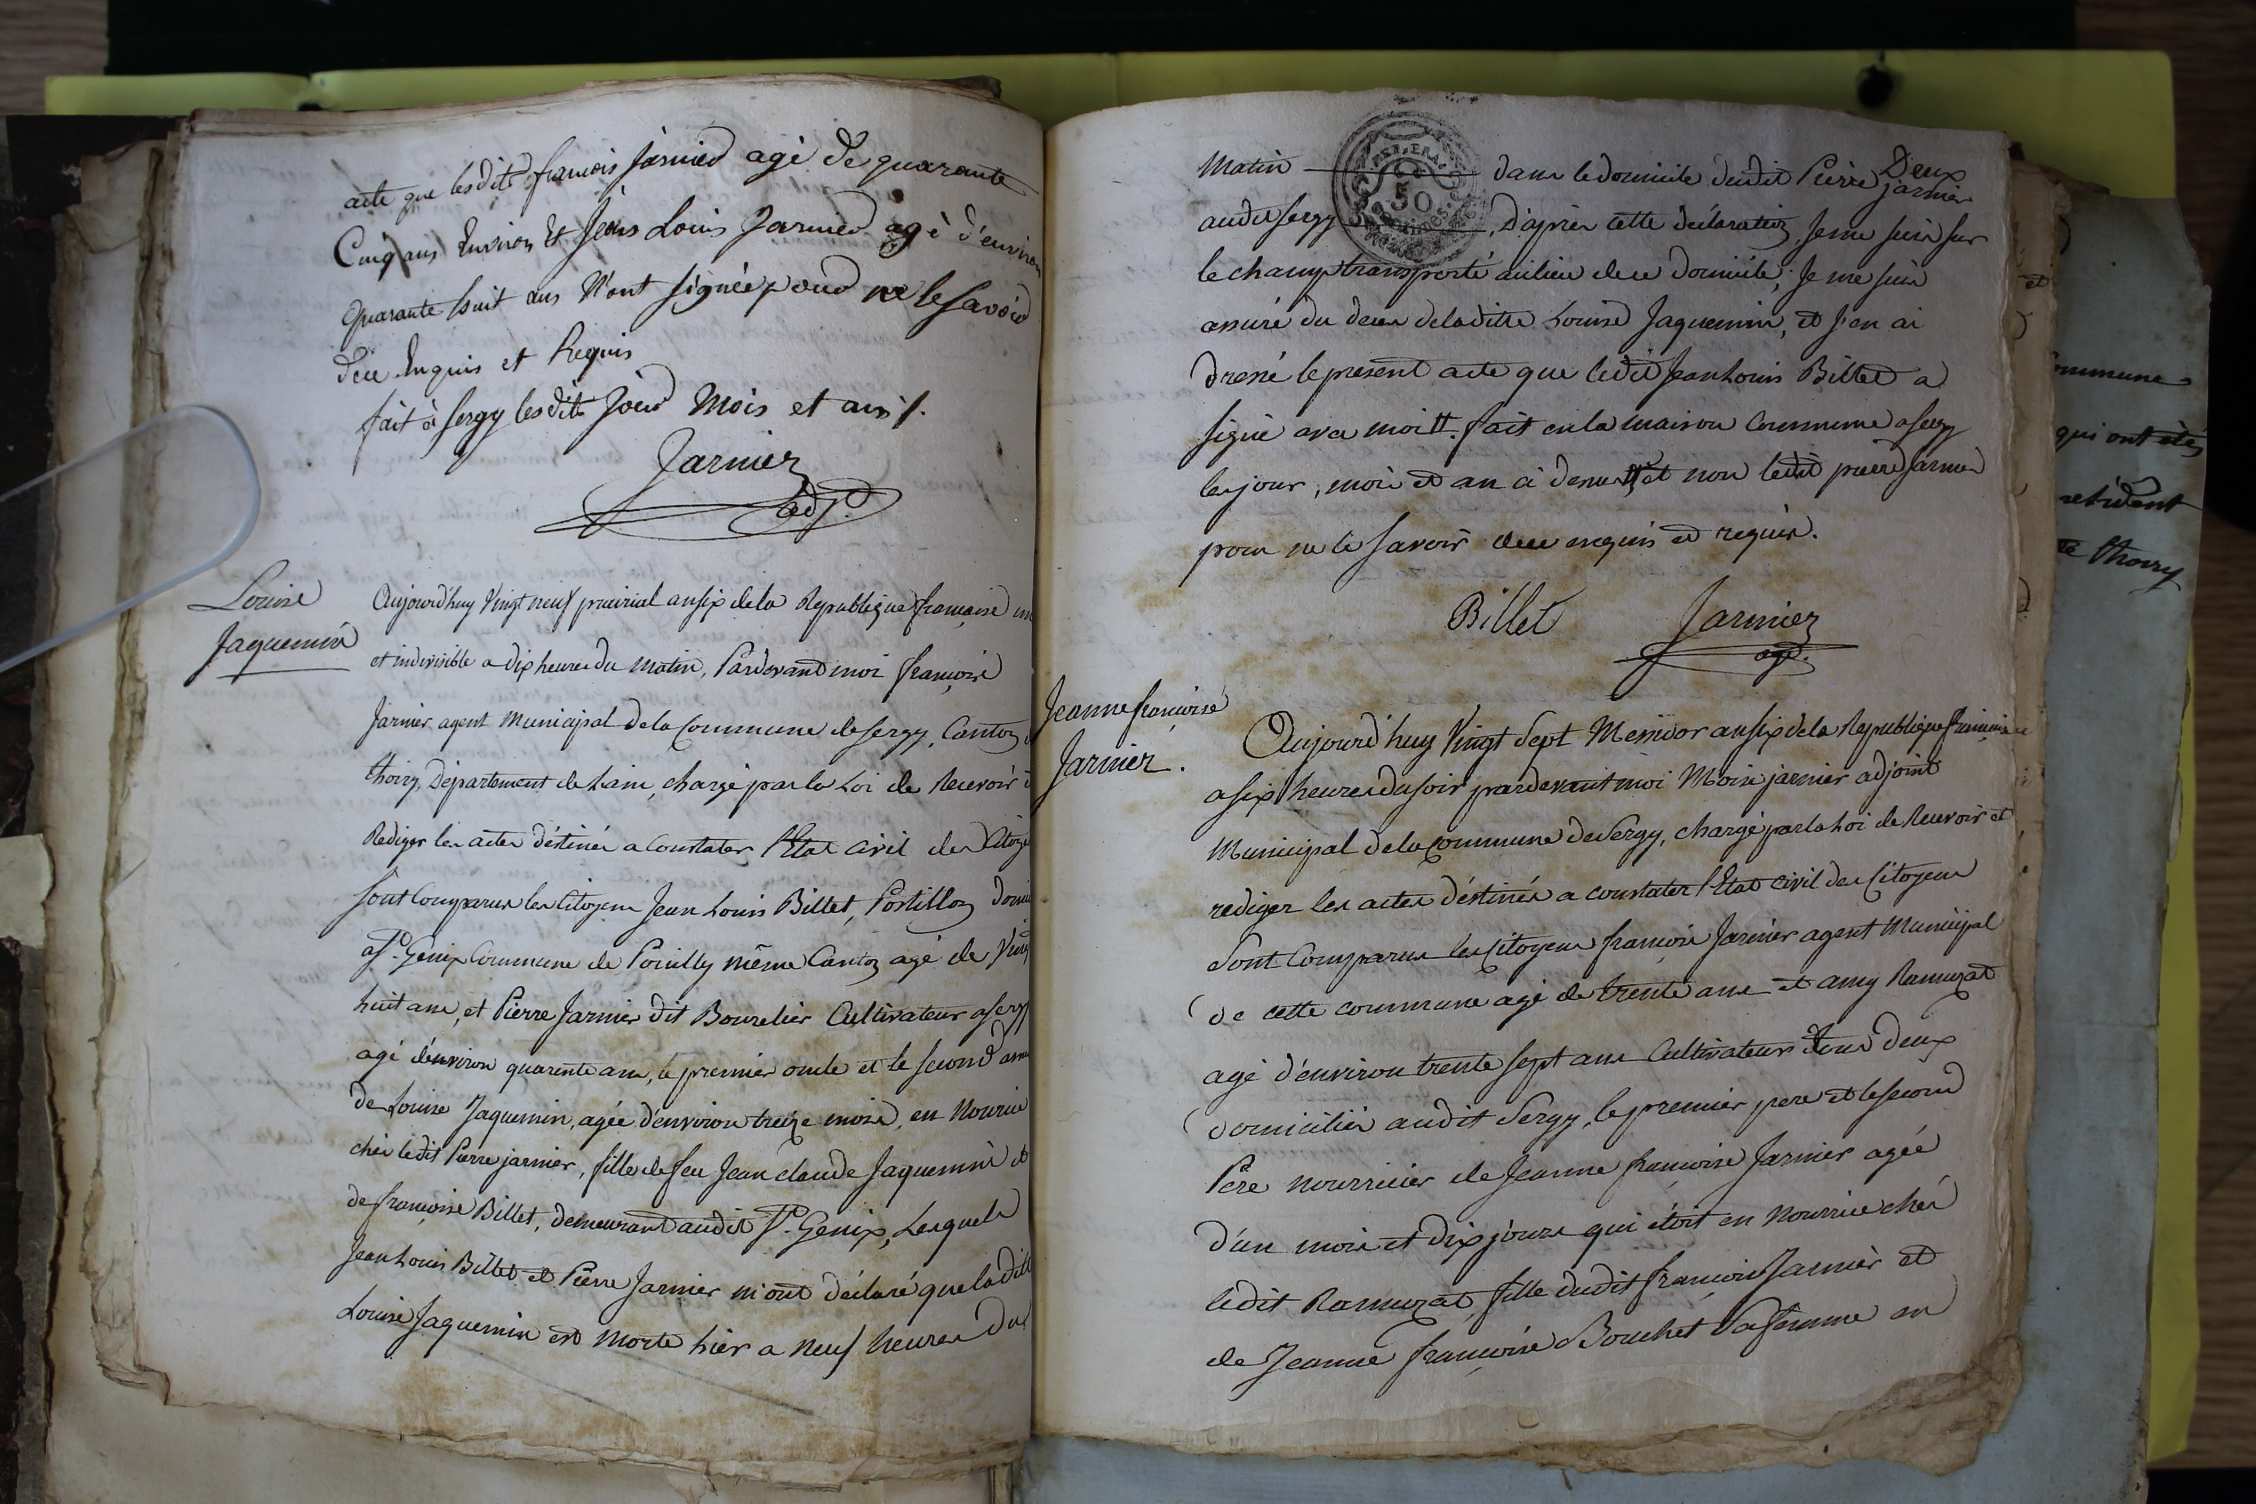 acte que lesdits francois Jarnier agé de quarante
Cinq ans Environ Et Jean Louis Jarnier agé d'environ
Quarante huit ans N'ont signée pour ne le savoir
de ce Enquis et Requis
fait à Sergy lesdits Jour Mois et an
Jarnier
adj.
Louise
Jaquemin
Aujourdhuy Vingt neuf prairial an six de la Republique française un
et indivisible a dix heures du matin, Pardevant moi françois
Jarnier agent Municipal de la Commune de Sergy, Canton
thoiry, Département de Lain, chargé par la Loi de Recevoir
Rediger les actes déstinés a Constater l'Etat civil des Citoye
sont Comparus les Citoyens Jean Louis Billet, Postillon Domi
a St. Genix Commune de Pouilly même Canton agé de Vin
huit ans, et Pierre Jarnier dit Bourelier Cultivateur a Sergy
agé d'environ quarente ans, le premier oncle et le second
de Louise Jaquemin, agée d'environ treize mois, en Nourice
chés ledit Pierre jarnier, fille de feu Jean claude Jaquemin et
de françoise Billet, demeurant audit St. Genix, Lesquels
Jean Louis Billet et Pierre Jarnier m'ont déclaré que la ditte
Louise Jaquemin est Morte hier a neuf heures du
Deux
Matin dans le domicile dudit Pierre jarnier
audit Sergy, D'aprés cette déclaration, Je me suis sur
le champ transporté au lieu de ce domicile, Je me suis
assuré du deces de laditte Louise Jaquemin, et J'en ai
Dressé le présent acte que ledit Jean Louis Billet a
signé avec moi ⸗. fait en la maison Commune a Sergy
les jour, mois et an ci dessus ⸗ et non ledit pierre Jarnier
pour ne le savoir de ce enquis et requis.
50
Billet Jarnier
agt.
Jeanne françoise
Jarnier.
Aujourd'huy Vingt Sept Messidor an six de la Republique Françoise
a six heures du soir pardevant moi Moise jarnier adjoint
Municipal de la Commune de Sergy, chargé par la Loi de Recevoir et
rediger les actes déstinés a constater l'Etat civil des Citoyens
Sont Comparus les Citoyens françois Jarnier agent Municipal
de cette commune agé de trente ans et amy Ramuzat
agé d'environ trente sept ans Cultivateurs Tous deux
domiciliés audit Sergy, le premier pere et le second
Pere nourricier de Jeanne françoise Jarnier agée
d'un mois et dix jours qui étoit en nourrice chés
ledit Ramuzat, fille dudit françois Jarnier et
de Jeanne françoise Bouchet sa femme en
et
ommune
qui ont étés
résident
thoiry